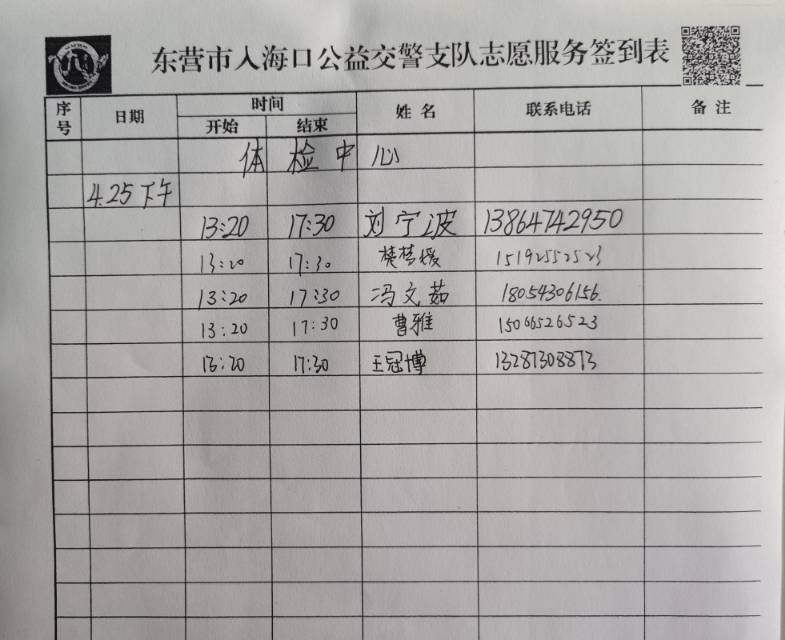 东营市入海口公益交警支队志愿服务签到表
序号 日期 时间 姓名 联系电话 备注
开始 结束
体检中心
4.25下午
13:20 17:30 刘宁波 13864742950
13:20 17:30 樊梦媛 15192552523
13:20 17:30 冯文茹 18054306156.
13:20 17:30 曹雅 15066526523
13:20 17:30 王冠博 13287308873